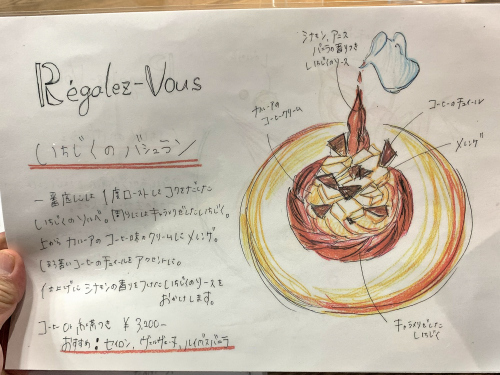 Régalez-Vous
いちじくのバシュラン
一番底には1度ローストしてコクをだした
いちじくのソルベ。周りにはキャラメリゼしたいちじく。
上から カルーアのコーヒー味のクリームに メレンゲ。
ほろ苦いコーヒーのチュイールをアクセントに。
仕上げに シナモンの香りをつけたいちじくのソースを
おかけします。
コーヒーor 紅茶つき ¥3,200-
おすすめ：セイロン、ヴェルヴェーヌ、ルイボスバニラ
シナモン、アニス
バニラの香りの
いちじくのソース
カルーアの
コーヒークリーム
コーヒーのチュイール
メレンゲ
キャラメリゼした
いちじく